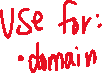 use for:
• domain